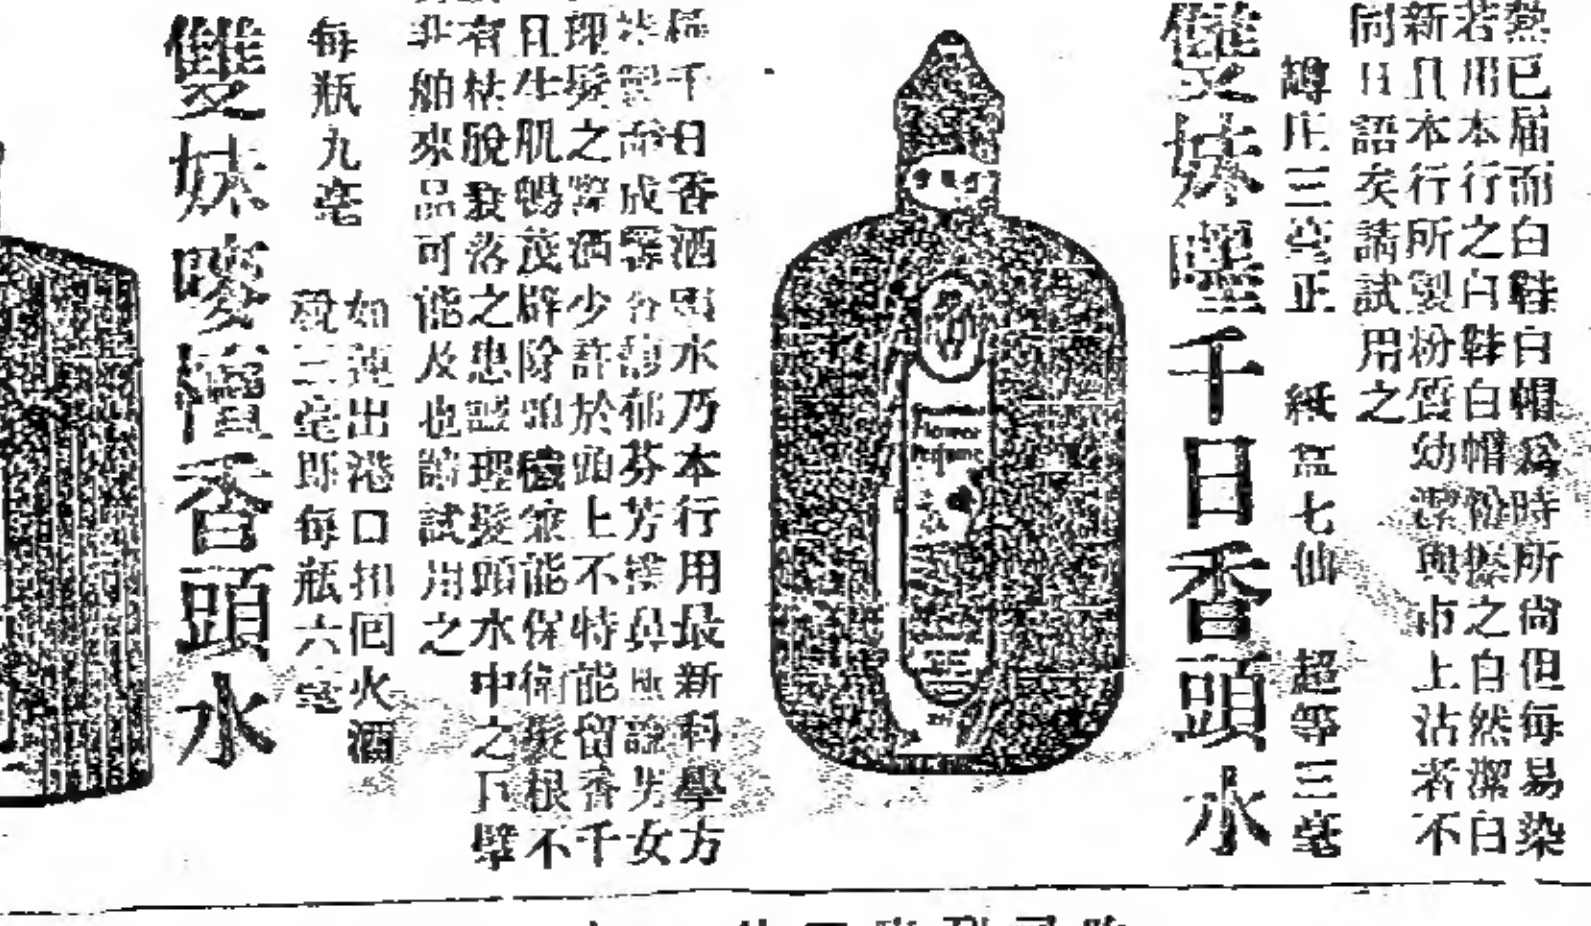 熱已屆而白鞋白帽爲時所尚但每易染
若用本行之白鞋白帽粉搽之自然潔白
新且本行所製粉質幼潔與市上沽者不
同日語矣請試用之
罇庄三毫正 紙盒七仙 超等三毫
雙妹嚜千日香頭水
Flower
Perfume
千日香酒頭水乃本行用最新科學方
成 郁芬芳撲鼻 男女
理髮之際洒少許於頭上不特能留香千
且生肌暢茂辟除 兼能保衛髮根不
有枯脫髮落之患 理髮頭水中之巨擘
非舶來品可能及也請試用之
每瓶九毫
如運出港口扣回火酒
稅三毫即每瓶六毫
雙妹嘜檀香頭水